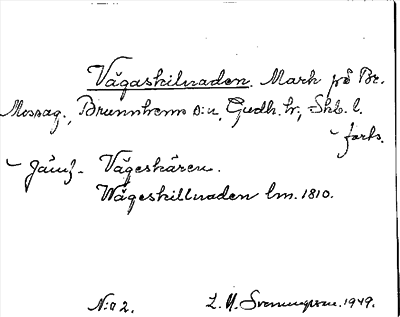 Vägaskilnaden. Mark på Br.
Mossag., Brunnhems s:n, Gudh. hr, Skb. l.
– forts.
– Jämf. Vägeskären.
Wägeskillnaden lm. 1810.
N:o 2. L. M. Svenungsson. 1949.